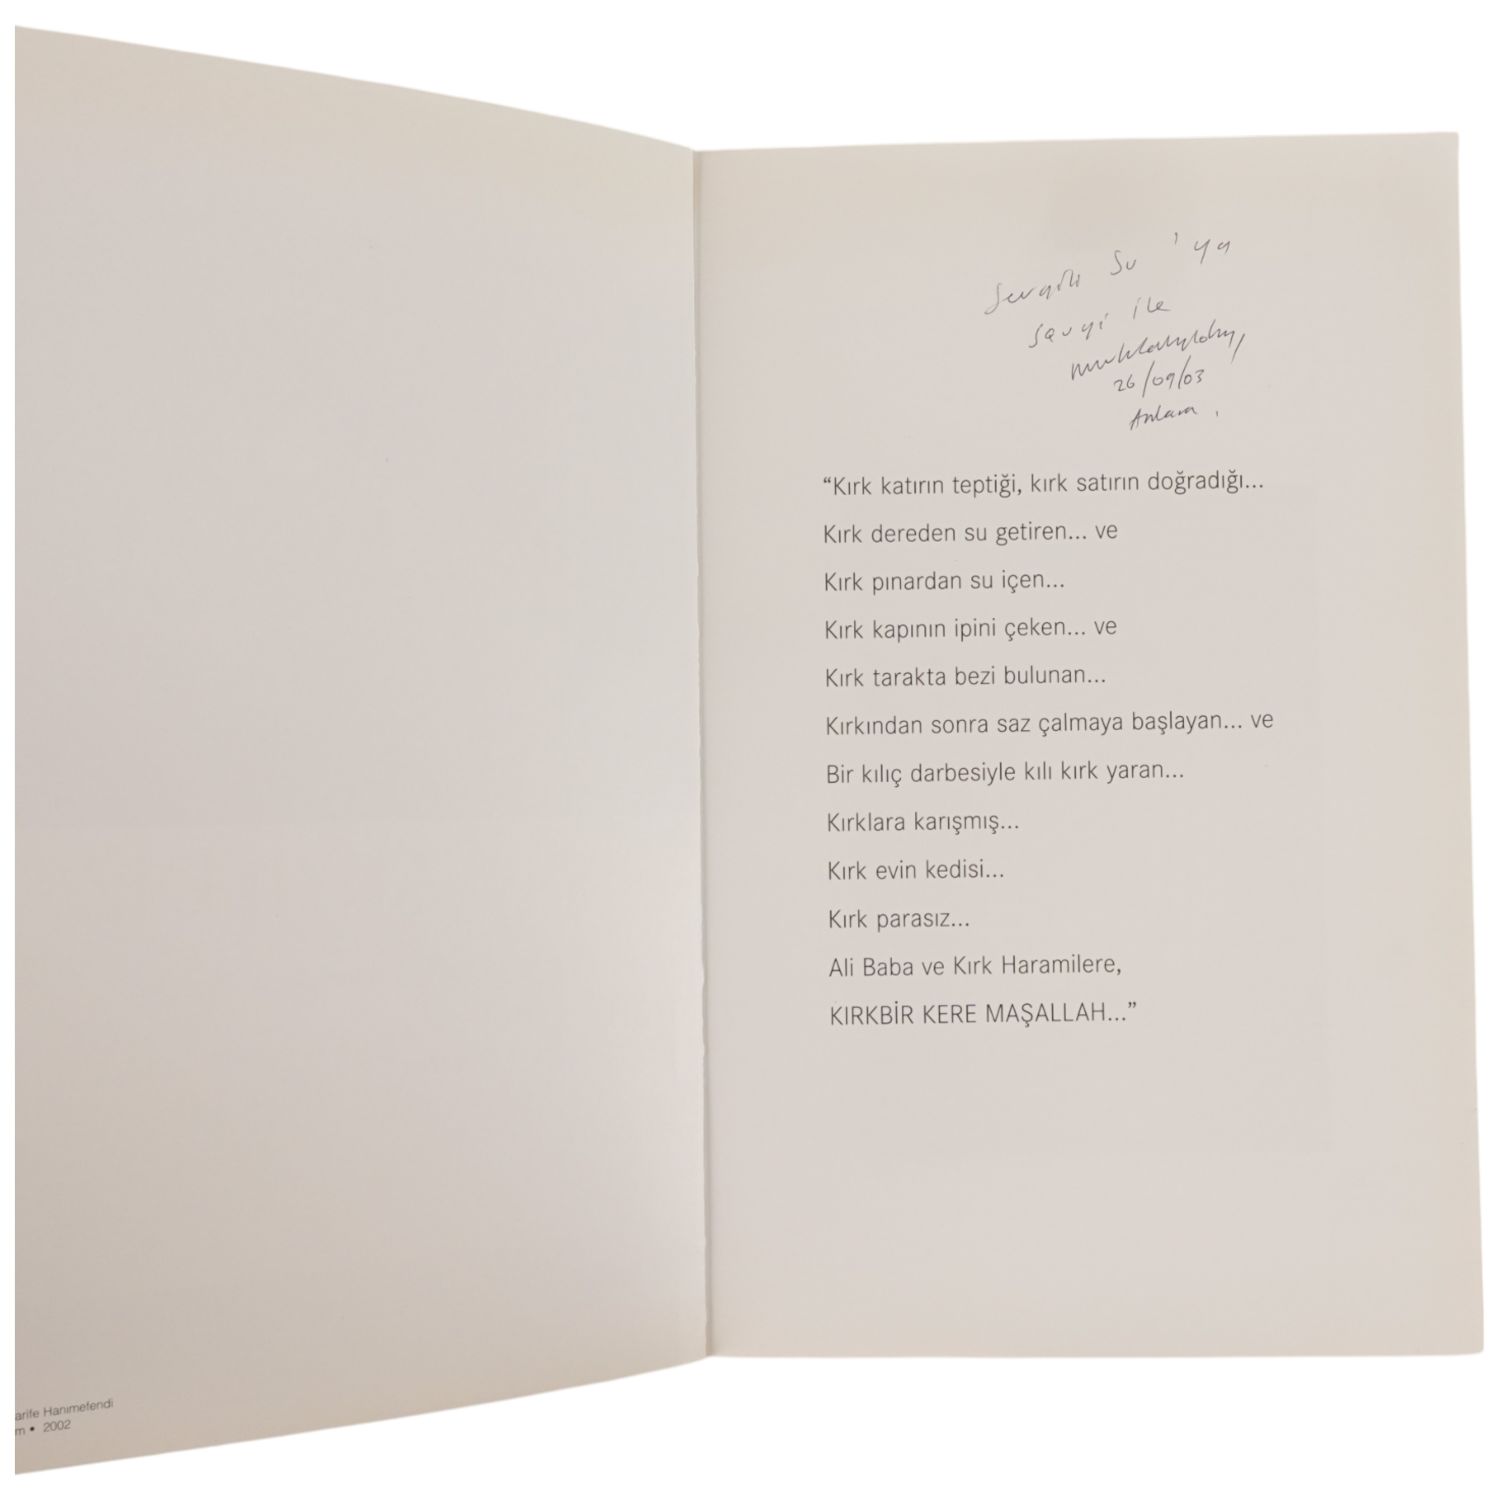 arife Hanımefendi
m • 2002
Sevgili Su 'ya
sevgi ile
26/09/03
Ankara.
“Kırk katırın teptiği, kırk satırın doğradığı...
Kırk dereden su getiren... ve
Kırk pınardan su içen...
Kırk kapının ipini çeken... ve
Kırk tarakta bezi bulunan...
Kırkından sonra saz çalmaya başlayan... ve
Bir kılıç darbesiyle kılı kırk yaran...
Kırklara karışmış...
Kırk evin kedisi...
Kırk parasız...
Ali Baba ve Kırk Haramilere,
KIRKBİR KERE MAŞALLAH...”